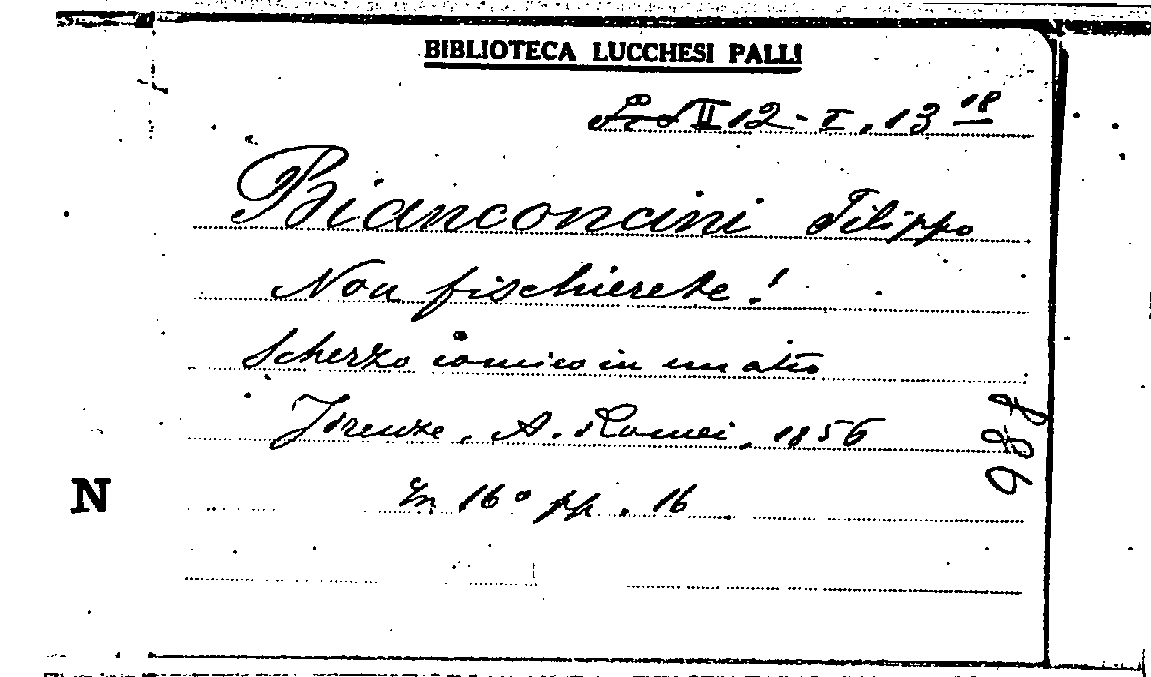 BIBLIOTECA LUCCHESI PALLI
II 12 - I. 13 18
Bianconcini Filippo
Non fischierete!
Scherzo comico in un atto
Firenze, A. Romei, 1856
In 16° pp. 16
N